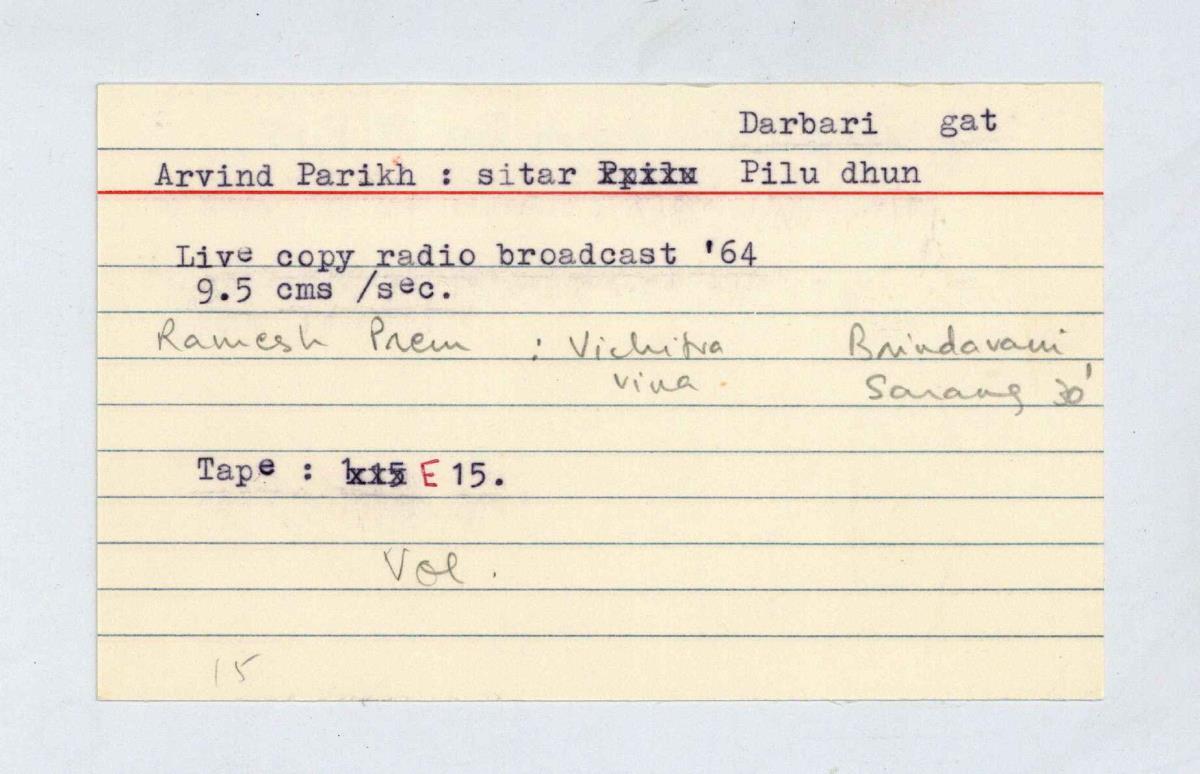 Darbari gat
Arvind Parikh : sitar Pilu dhun
Live copy radio broadcast '64
9.5 cms /sec.
Ramesh Prem : Vichitra Brindavani
vina Sarang 30'
Tape : E 15.
Vol.
15